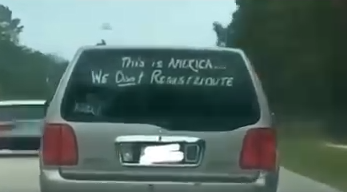 This is AMERICA....
WE Don't REDISTRIBUTE